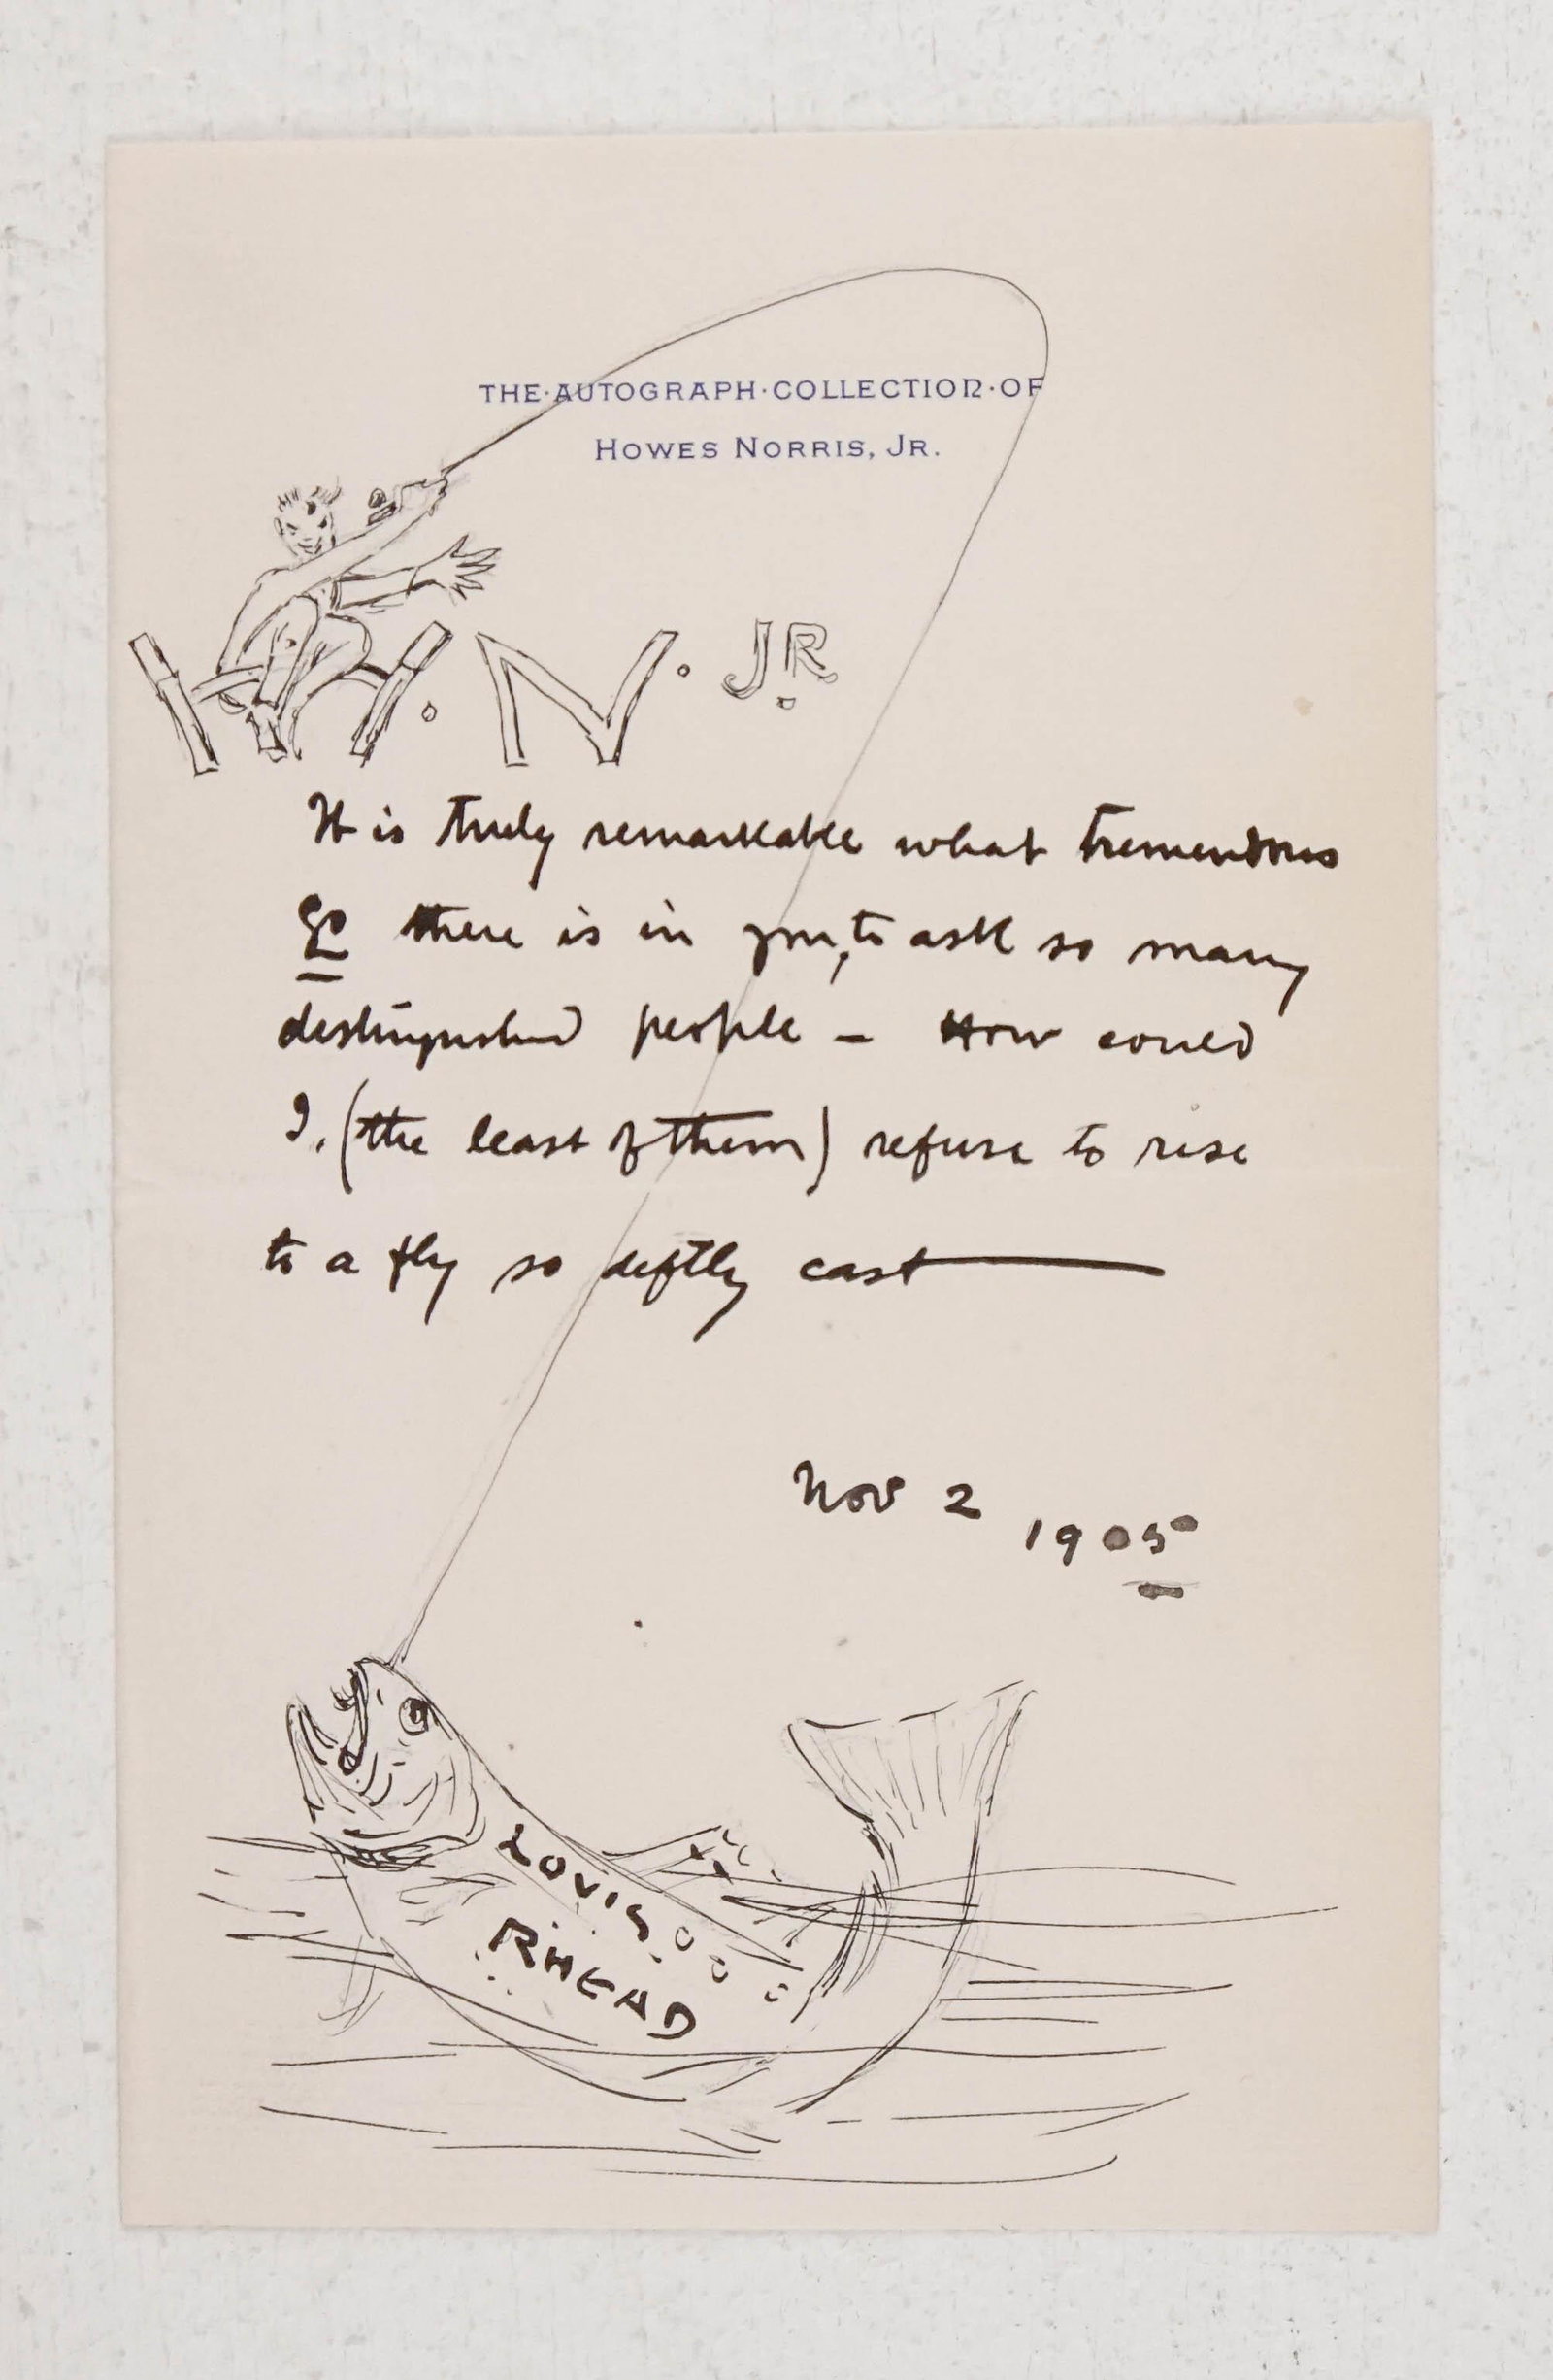 THE·AUTOGRAPH·COLLECTION·OF
HOWES NORRIS, JR.
H. N. JR.
It is truly remarkable what tremendous
Go there is in you, to ask so many
distinguished people – How could
I, (the least of them) refuse to rise
to a fly so deftly cast —
Nov 2 1905
LOUIS
RHEAD